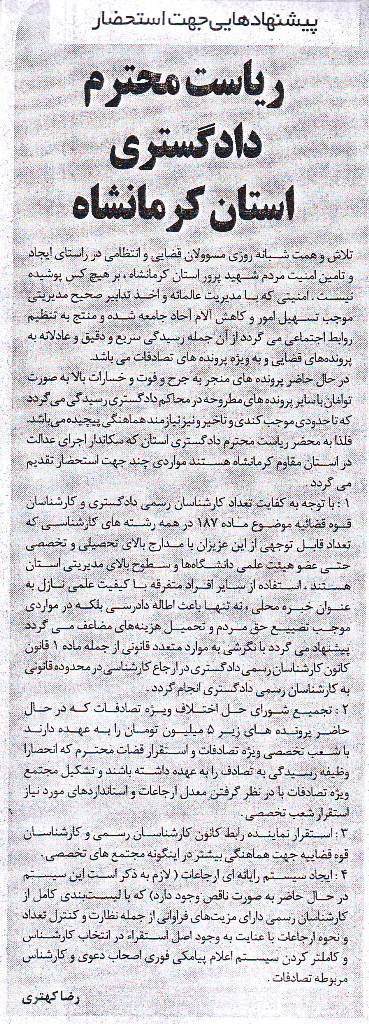 پیشنهادهایی جهت استحضار
ریاست محترم
دادگستری
استان کرمانشاه
تلاش و همت شبانه روزی مسوولان قضایی و انتظامی در راستای ایجاد
و تامین امنیت مردم شهید پرور استان کرمانشاه ، بر هیچ کس پوشیده
نیست . امنیتی که با مدیریت عالمانه و اخذ تدابیر صحیح مدیریتی
موجب تسهیل امور و کاهش آلام آحاد جامعه شده و منتج به تنظیم
روابط اجتماعی می گردد از آن جمله رسیدگی سریع و دقیق و عادلانه به
پرونده‌های قضایی و به ویژه پرونده های تصادفات می باشد.
در حال حاضر پرونده های منجر به جرح و فوت و خسارات بالا به صورت
توامان با سایر پرونده‌های مطروحه در محاکم دادگستری رسیدگی می‌گردد
که تا حدودی موجب کندی و تاخیر و نیز نیازمند هماهنگی پیچیده می‌باشد.
فلذا به محضر ریاست محترم دادگستری استان که سکاندار اجرای عدالت
در استان مقاوم کرمانشاه هستند مواردی چند جهت استحضار تقدیم
می گردد.
۱ : با توجه به کفایت تعداد کارشناسان رسمی دادگستری و کارشناسان
قوه قضائیه موضوع ماده ۱۸۷ در همه رشته های کارشناسی که
تعداد قابل توجهی از این عزیزان با مدارج بالای تحصیلی و تخصصی
حتی عضو هیئت علمی دانشگاه‌ها و سطوح بالای مدیریتی استان
هستند ، استفاده از سایر افراد متفرقه با کیفیت علمی نازل به
عنوان خبره محلی ، نه تنها باعث اطاله دادرسی بلکه در مواردی
موجب تضییع حق مردم و تحمیل هزینه‌های مضاعف می گردد
پیشنهاد می گردد با نگرشی به موارد متعدد قانونی از جمله ماده ۱ قانون
کانون کارشناسان رسمی دادگستری در ارجاع کارشناسی در محدوده قانونی
به کارشناسان رسمی دادگستری انجام گردد.
۲ : تجمیع شورای حل اختلاف ویژه تصادفات که در حال
حاضر پرونده های زیر ۵ میلیون تومان را به عهده دارند
با شعب تخصصی ویژه تصادفات و استقرار قضات محترم که انحصارا
وظیفه رسیدگی به تصادف را به عهده داشته باشند و تشکیل مجتمع
ویژه تصادفات با در نظر گرفتن معدل ارجاعات و استانداردهای مورد نیاز
استقرار شعب تخصصی .
۳ : استقرار نماینده رابط کانون کارشناسان رسمی و کارشناسان
قوه قضاییه جهت هماهنگی بیشتر در اینگونه مجتمع های تخصصی.
۴ : ایجاد سیستم رایانه ای ارجاعات ( لازم به ذکر است این سیستم
در حال حاضر به صورت ناقص وجود دارد) که با لیست‌بندی کامل از
کارشناسان رسمی دارای مزیت‌های فراوانی از جمله نظارت و کنترل تعداد
و نحوه ارجاعات با عنایت به وجود اصل استقراء در انتخاب کارشناس
و کاملتر کردن سیستم اعلام پیامکی فوری اصحاب دعوی و کارشناس
مربوطه تصادفات .
رضا کهتری